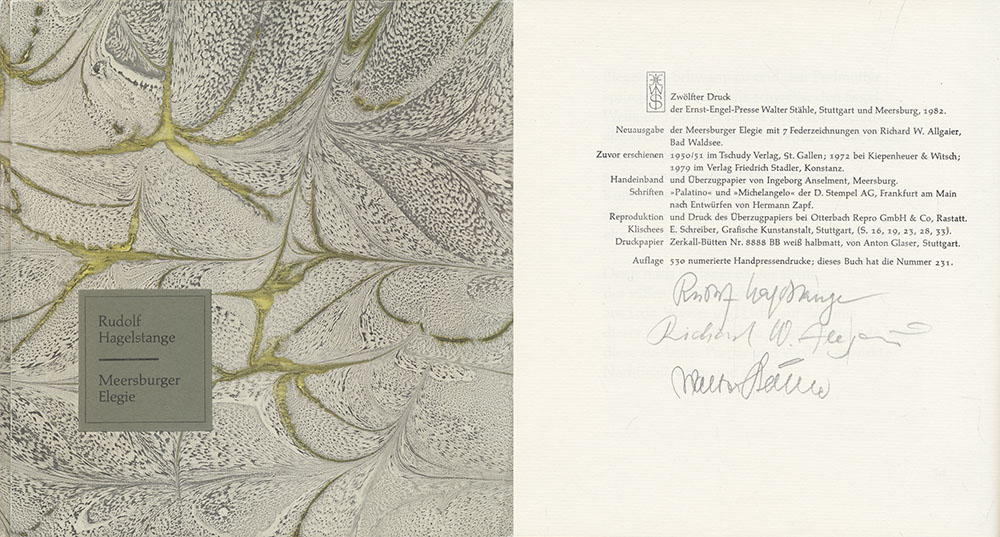 Rudolf
Hagelstange
Meersburger
Elegie
Zwölfter Druck
der Ernst-Engel-Presse Walter Stähle, Stuttgart und Meersburg, 1982.
Neuausgabe der Meersburger Elegie mit 7 Federzeichnungen von Richard W. Allgaier,
Bad Waldsee.
Zuvor erschienen 1950/51 im Tschudy Verlag, St. Gallen; 1972 bei Kiepenheuer & Witsch;
1979 im Verlag Friedrich Stadler, Konstanz.
Handeinband und Überzugpapier von Ingeborg Anselment, Meersburg.
Schriften »Palatino« und »Michelangelo« der D. Stempel AG, Frankfurt am Main
nach Entwürfen von Hermann Zapf.
Reproduktion und Druck des Überzugpapiers bei Otterbach Repro GmbH & Co, Rastatt.
Klischees E. Schreiber, Grafische Kunstanstalt, Stuttgart, (S. 16, 19, 23, 28, 33).
Druckpapier Zerkall-Bütten Nr. 8888 BB weiß halbmatt, von Anton Glaser, Stuttgart.
Auflage 530 numerierte Handpressendrucke; dieses Buch hat die Nummer 231.
Rudolf Hagelstange
Richard W. Allgaier
Walter Stähle